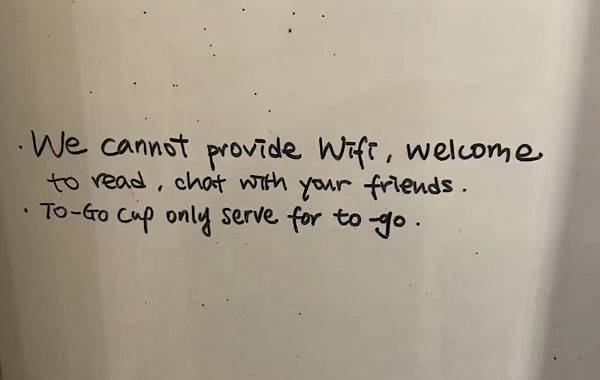 · We cannot provide Wifi, welcome
to read, chat with your friends.
· To-Go cup only serve for to-go.